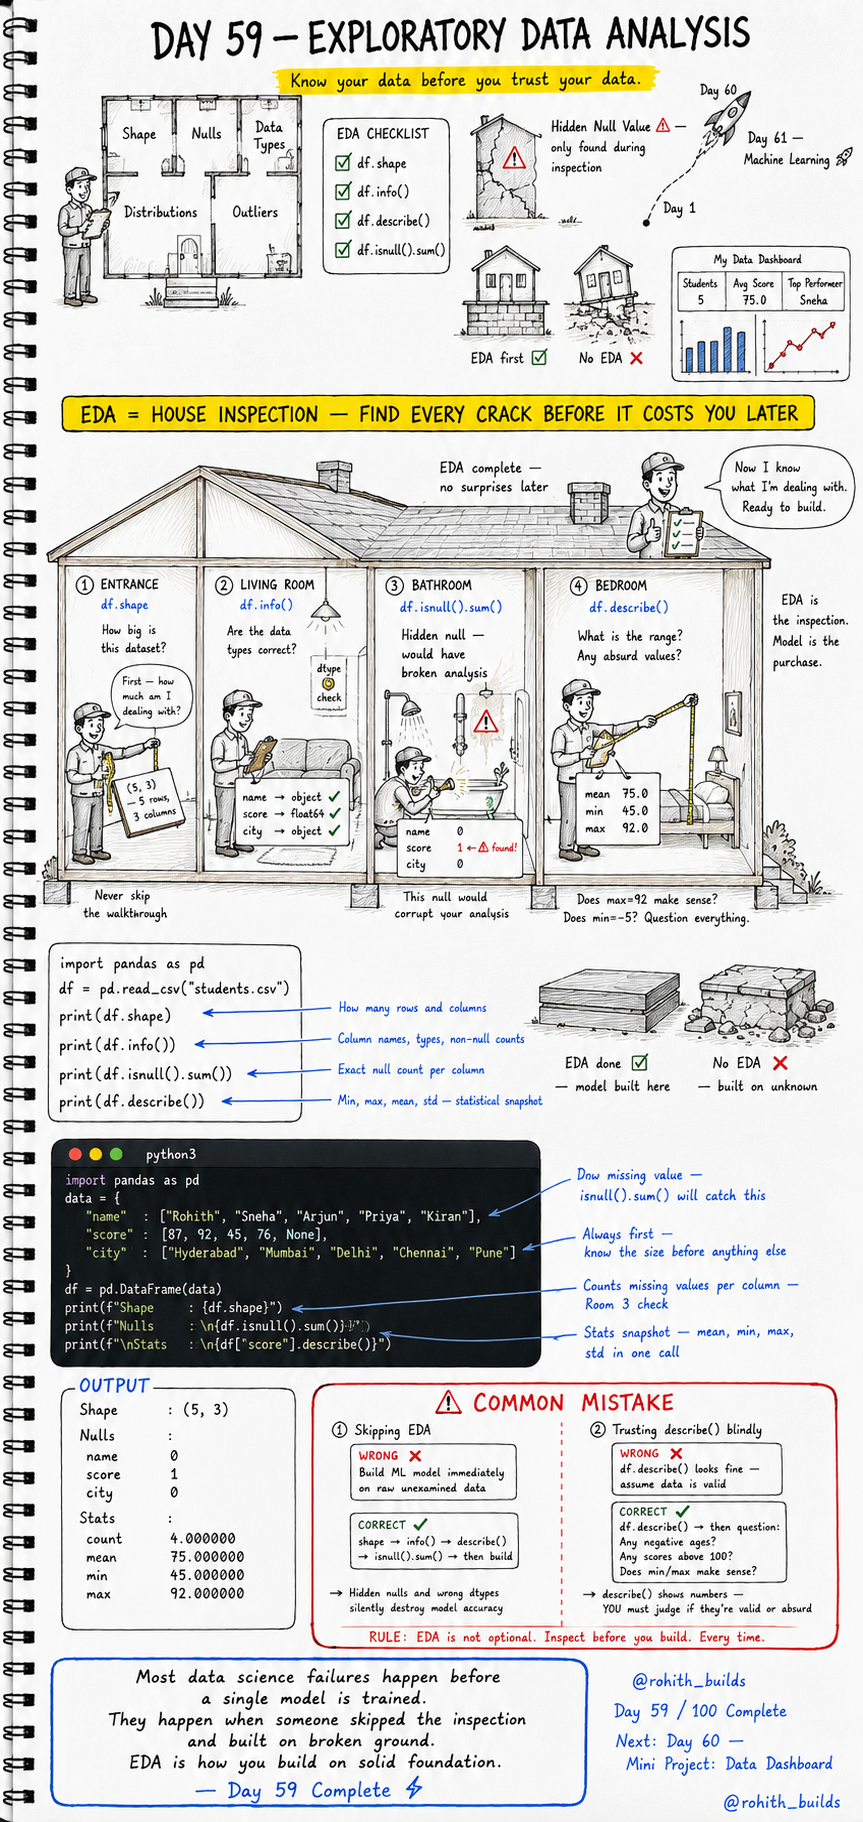 DAY 59 – EXPLORATORY DATA ANALYSIS
Know your data before you trust your data.
Shape
Nulls
Data
Types
Distributions
Outliers
EDA CHECKLIST
df.shape
df.info()
df.describe()
df.isnull().sum()
Hidden Null Value ⚠ —
only found during
inspection
Day 60
Day 61 —
Machine Learning 🚀
Day 1
EDA first ☑
No EDA ❌
My Data Dashboard
Students
5
Avg Score
75.0
Top Performer
Sneha
EDA = HOUSE INSPECTION — FIND EVERY CRACK BEFORE IT COSTS YOU LATER
EDA complete —
no surprises later
Now I know
what I'm dealing with.
Ready to build.
① ENTRANCE
df.shape
How big is
this dataset?
First — how
much am I
dealing with?
(5, 3)
— 5 rows,
3 columns
② LIVING ROOM
df.info()
Are the data
types correct?
dtype
check
name → object ✓
score → float64 ✓
city → object ✓
③ BATHROOM
df.isnull().sum()
Hidden null —
would have
broken analysis
name 0
score 1 ← ⚠ found!
city 0
④ BEDROOM
df.describe()
What is the range?
Any absurd values?
mean 75.0
min 45.0
max 92.0
EDA is
the inspection.
Model is the
purchase.
Never skip
the walkthrough
This null would
corrupt your analysis
Does max=92 make sense?
Does min=-5? Question everything.
import pandas as pd
df = pd.read_csv("students.csv")
print(df.shape)
print(df.info())
print(df.isnull().sum())
print(df.describe())
How many rows and columns
Column names, types, non-null counts
Exact null count per column
Min, max, mean, std — statistical snapshot
EDA done ☑
— model built here
No EDA ❌
— built on unknown
python3
import pandas as pd
data = {
"name" : ["Rohith", "Sneha", "Arjun", "Priya", "Kiran"],
"score" : [87, 92, 45, 76, None],
"city" : ["Hyderabad", "Mumbai", "Delhi", "Chennai", "Pune"]
}
df = pd.DataFrame(data)
print(f"Shape : {df.shape}")
print(f"Nulls : \n{df.isnull().sum()}
print(f"\nStats : \n{df["score"].describe()}")
Dnw missing value —
isnull().sum() will catch this
Always first —
know the size before anything else
Counts missing values per column —
Room 3 check
Stats snapshot — mean, min, max,
std in one call
OUTPUT
Shape : (5, 3)
Nulls :
name 0
score 1
city 0
Stats :
count 4.000000
mean 75.000000
min 45.000000
max 92.000000
⚠ COMMON MISTAKE
① Skipping EDA
WRONG ❌
Build ML model immediately
on raw unexamined data
CORRECT ✓
shape → info() → describe()
→ isnull().sum() → then build
→ Hidden nulls and wrong dtypes
silently destroy model accuracy
② Trusting describe() blindly
WRONG ❌
df.describe() looks fine —
assume data is valid
CORRECT ✓
df.describe() → then question:
Any negative ages?
Any scores above 100?
Does min/max make sense?
→ describe() shows numbers —
YOU must judge if they're valid or absurd
RULE: EDA is not optional. Inspect before you build. Every time.
Most data science failures happen before
a single model is trained.
They happen when someone skipped the inspection
and built on broken ground.
EDA is how you build on solid foundation.
— Day 59 Complete ⚡
@rohith_builds
Day 59 / 100 Complete
Next: Day 60 —
Mini Project: Data Dashboard
@rohith_builds